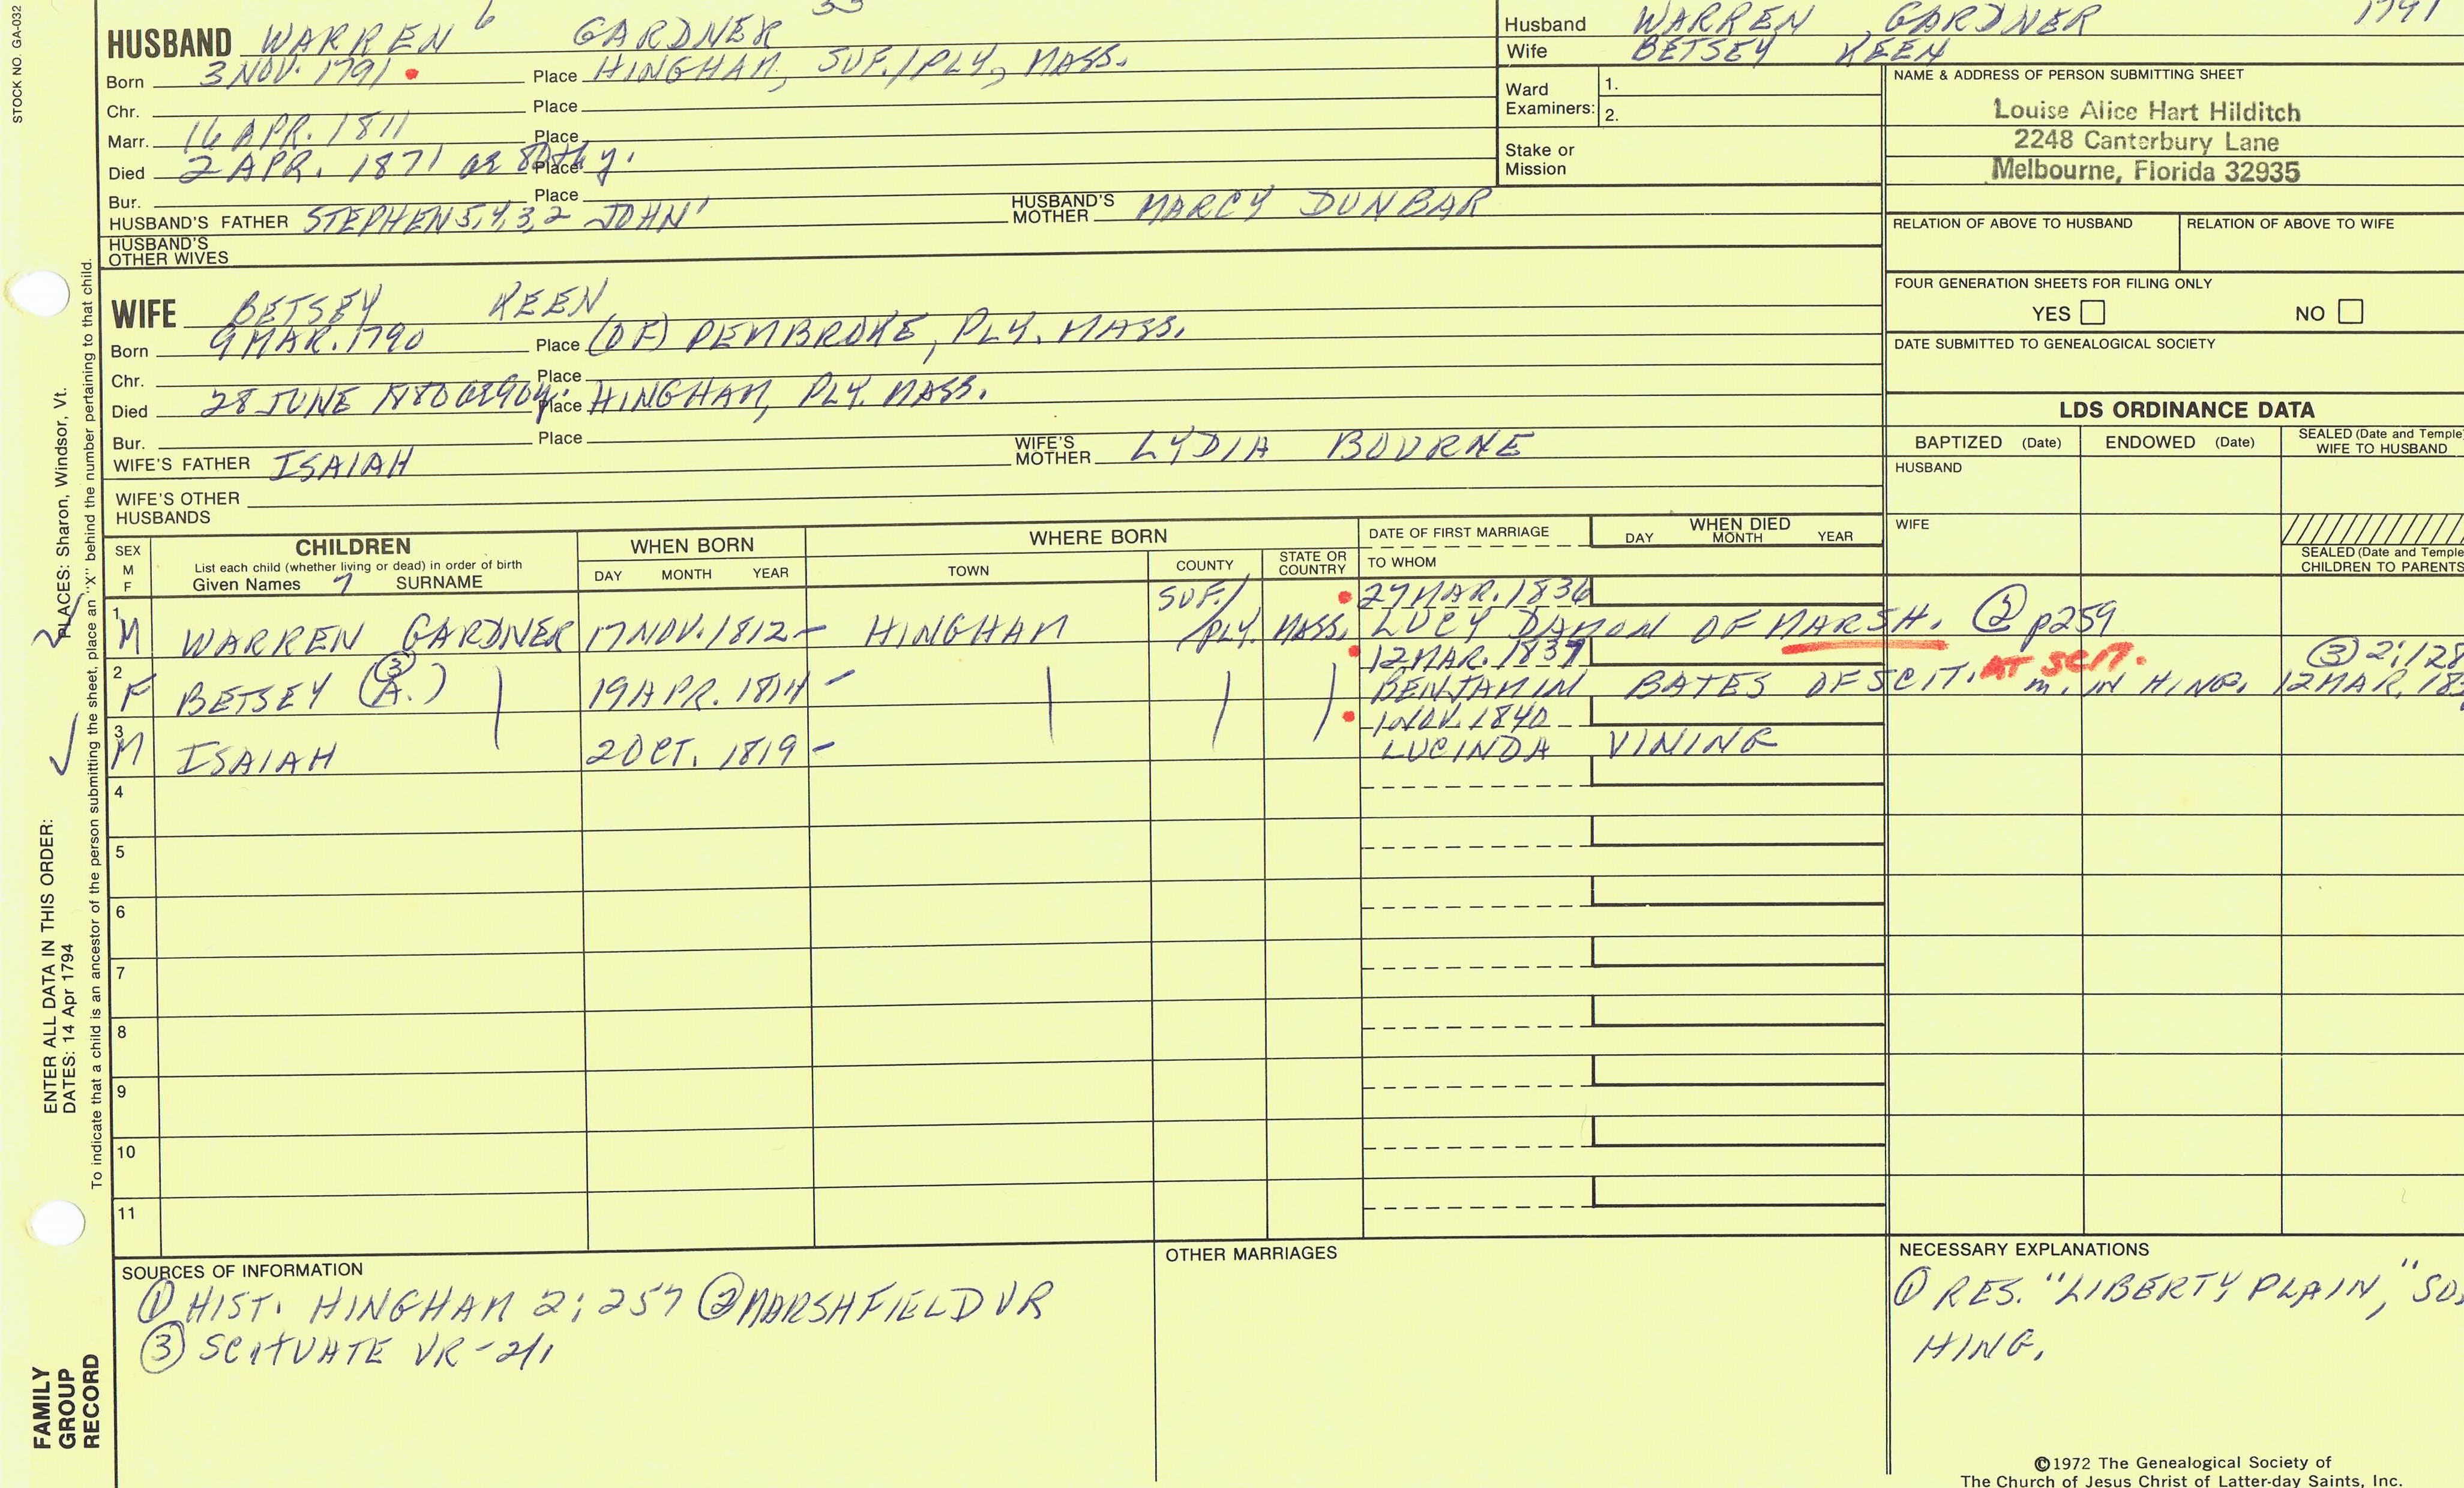 STOCK NO. GA-032
HUSBAND WARREN 6 GARDNER 33
Born 3 NOV. 1791 Place HINGHAM, SUF./PLY, MASS.
Chr. Place
Marr. 16 APR. 1811 Place
Died 2 APR. 1871 ae Place
Bur. Place
HUSBAND'S FATHER STEPHEN 5,4,3,2 JOHN'
HUSBAND'S MOTHER MARCY DUNBAR
HUSBAND'S OTHER WIVES
WIFE BETSEY KEEN
Born 9 MAR. 1790 Place (OF) PEMBROKE, PLY. MASS.
Chr. Place
Died 28 JUNE 1880 ae 90y. Place HINGHAM, PLY. MASS.
Bur. Place
WIFE'S FATHER ISAIAH
WIFE'S MOTHER LYDIA BOURNE
WIFE'S OTHER HUSBANDS
Husband WARREN GARDNER 1791
Wife BETSEY KEEN
Ward Examiners: 1.
2.
Stake or Mission
NAME & ADDRESS OF PERSON SUBMITTING SHEET
Louise Alice Hart Hilditch
2248 Canterbury Lane
Melbourne, Florida 32935
RELATION OF ABOVE TO HUSBAND
RELATION OF ABOVE TO WIFE
FOUR GENERATION SHEETS FOR FILING ONLY
YES NO
DATE SUBMITTED TO GENEALOGICAL SOCIETY
LDS ORDINANCE DATA
BAPTIZED (Date) ENDOWED (Date) SEALED (Date and Temple)
WIFE TO HUSBAND
HUSBAND
WIFE
SEALED (Date and Temple)
CHILDREN TO PARENTS
SEX
M
F
CHILDREN
List each child (whether living or dead) in order of birth
Given Names 7 SURNAME
WHEN BORN
DAY MONTH YEAR
WHERE BORN
TOWN COUNTY STATE OR COUNTRY
DATE OF FIRST MARRIAGE
TO WHOM
WHEN DIED
DAY MONTH YEAR
1 M WARREN GARDNER 17 NOV. 1812 - HINGHAM SUF./ /PLY. MASS. 27 MAR. 1836
LUCY DAMON OF MARSH. ② p259
2 F BETSEY (A.) ③ 19 APR. 1814 - 12 MAR. 1837
BENJAMIN BATES OF SCIT. AT SCIT. m. IN HING. 12 MAR. 18
③ 2:128
3 M ISAIAH 2 OCT. 1819 - 1 NOV. 1840
LUCINDA VINING
4
5
6
7
8
9
10
11
SOURCES OF INFORMATION
① HIST. HINGHAM 2; 257 ② MARSHFIELD VR
③ SCITUATE VR - 2/1
OTHER MARRIAGES
NECESSARY EXPLANATIONS
① RES. "LIBERTY PLAIN," SO.
HING.
©1972 The Genealogical Society of
The Church of Jesus Christ of Latter-day Saints, Inc.
ENTER ALL DATA IN THIS ORDER:
DATES: 14 Apr 1794
PLACES: Sharon, Windsor, Vt.
To indicate that a child is an ancestor of the person submitting the sheet, place an "X" behind the number pertaining to that child.
FAMILY
GROUP
RECORD